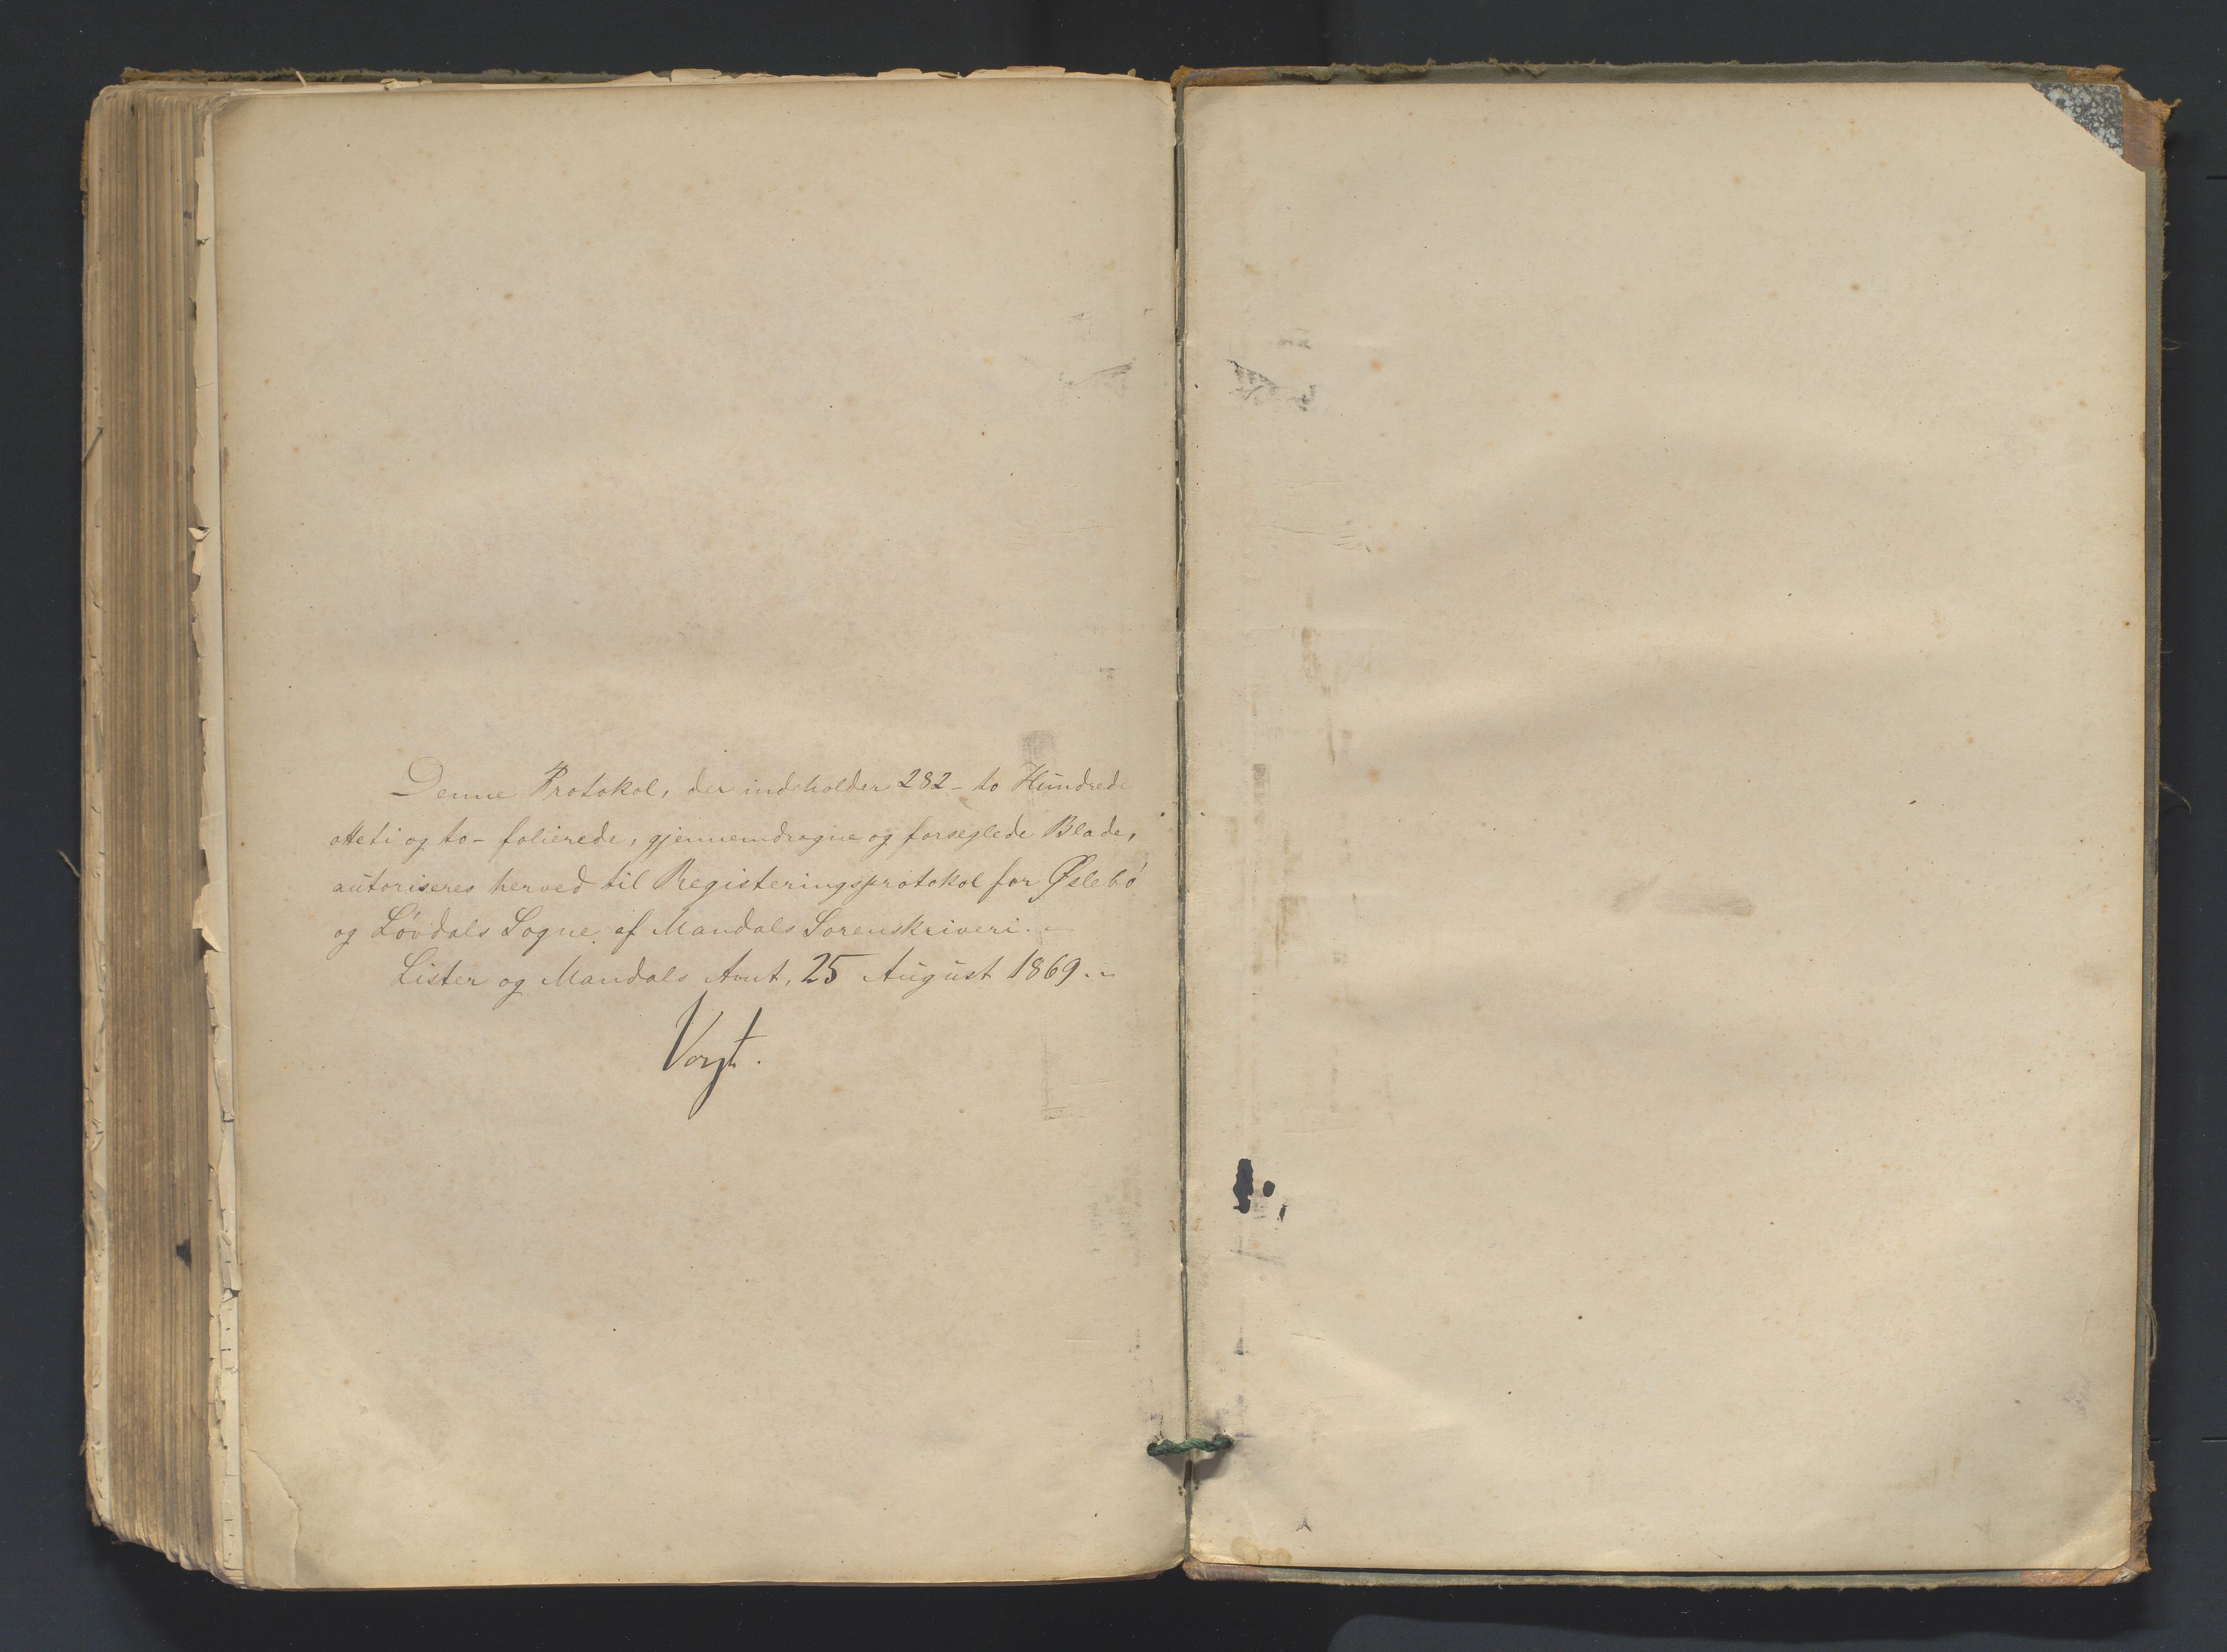 Denne Protokol, der indeholder 282 - to Hundrede
otteti og to - folierede, gjennemdragne og forseglede Blade,
autoriseres herved til Registeringsprotokol for Øslebö
og Lövdals Sogne af Mandals Sorenskriveri. -
Lister og Mandals Amt, 25 August 1869. -
Vogt.